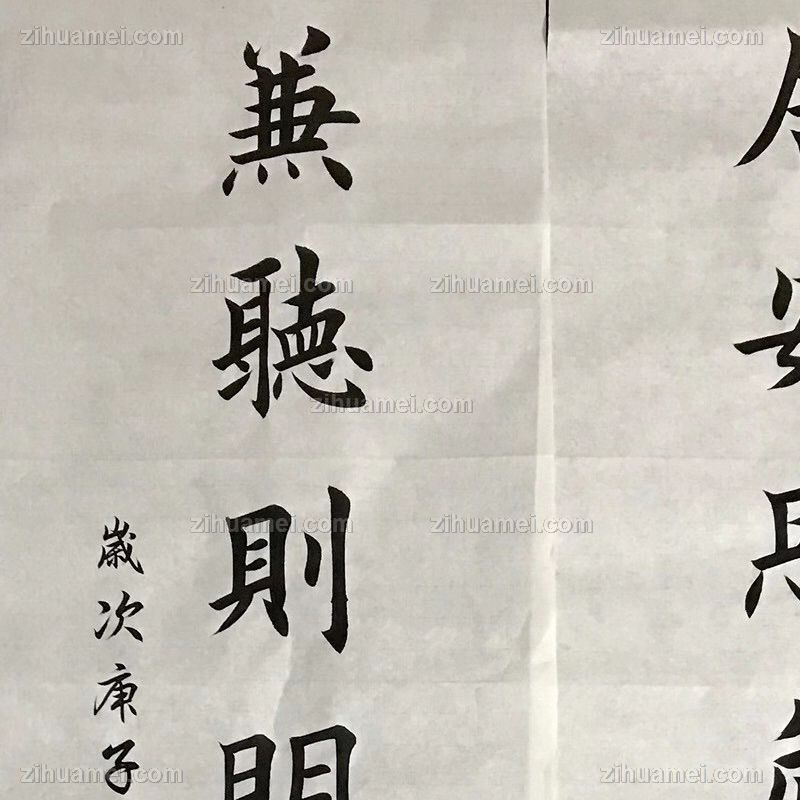 安
兼聽則明
歲次庚子
zihuamei.com
zihuamei.com
zihuamei.com
zihuamei.com
zihuamei.com
zihuamei.com
zihuamei.com
zihuamei.com
zihuamei.com